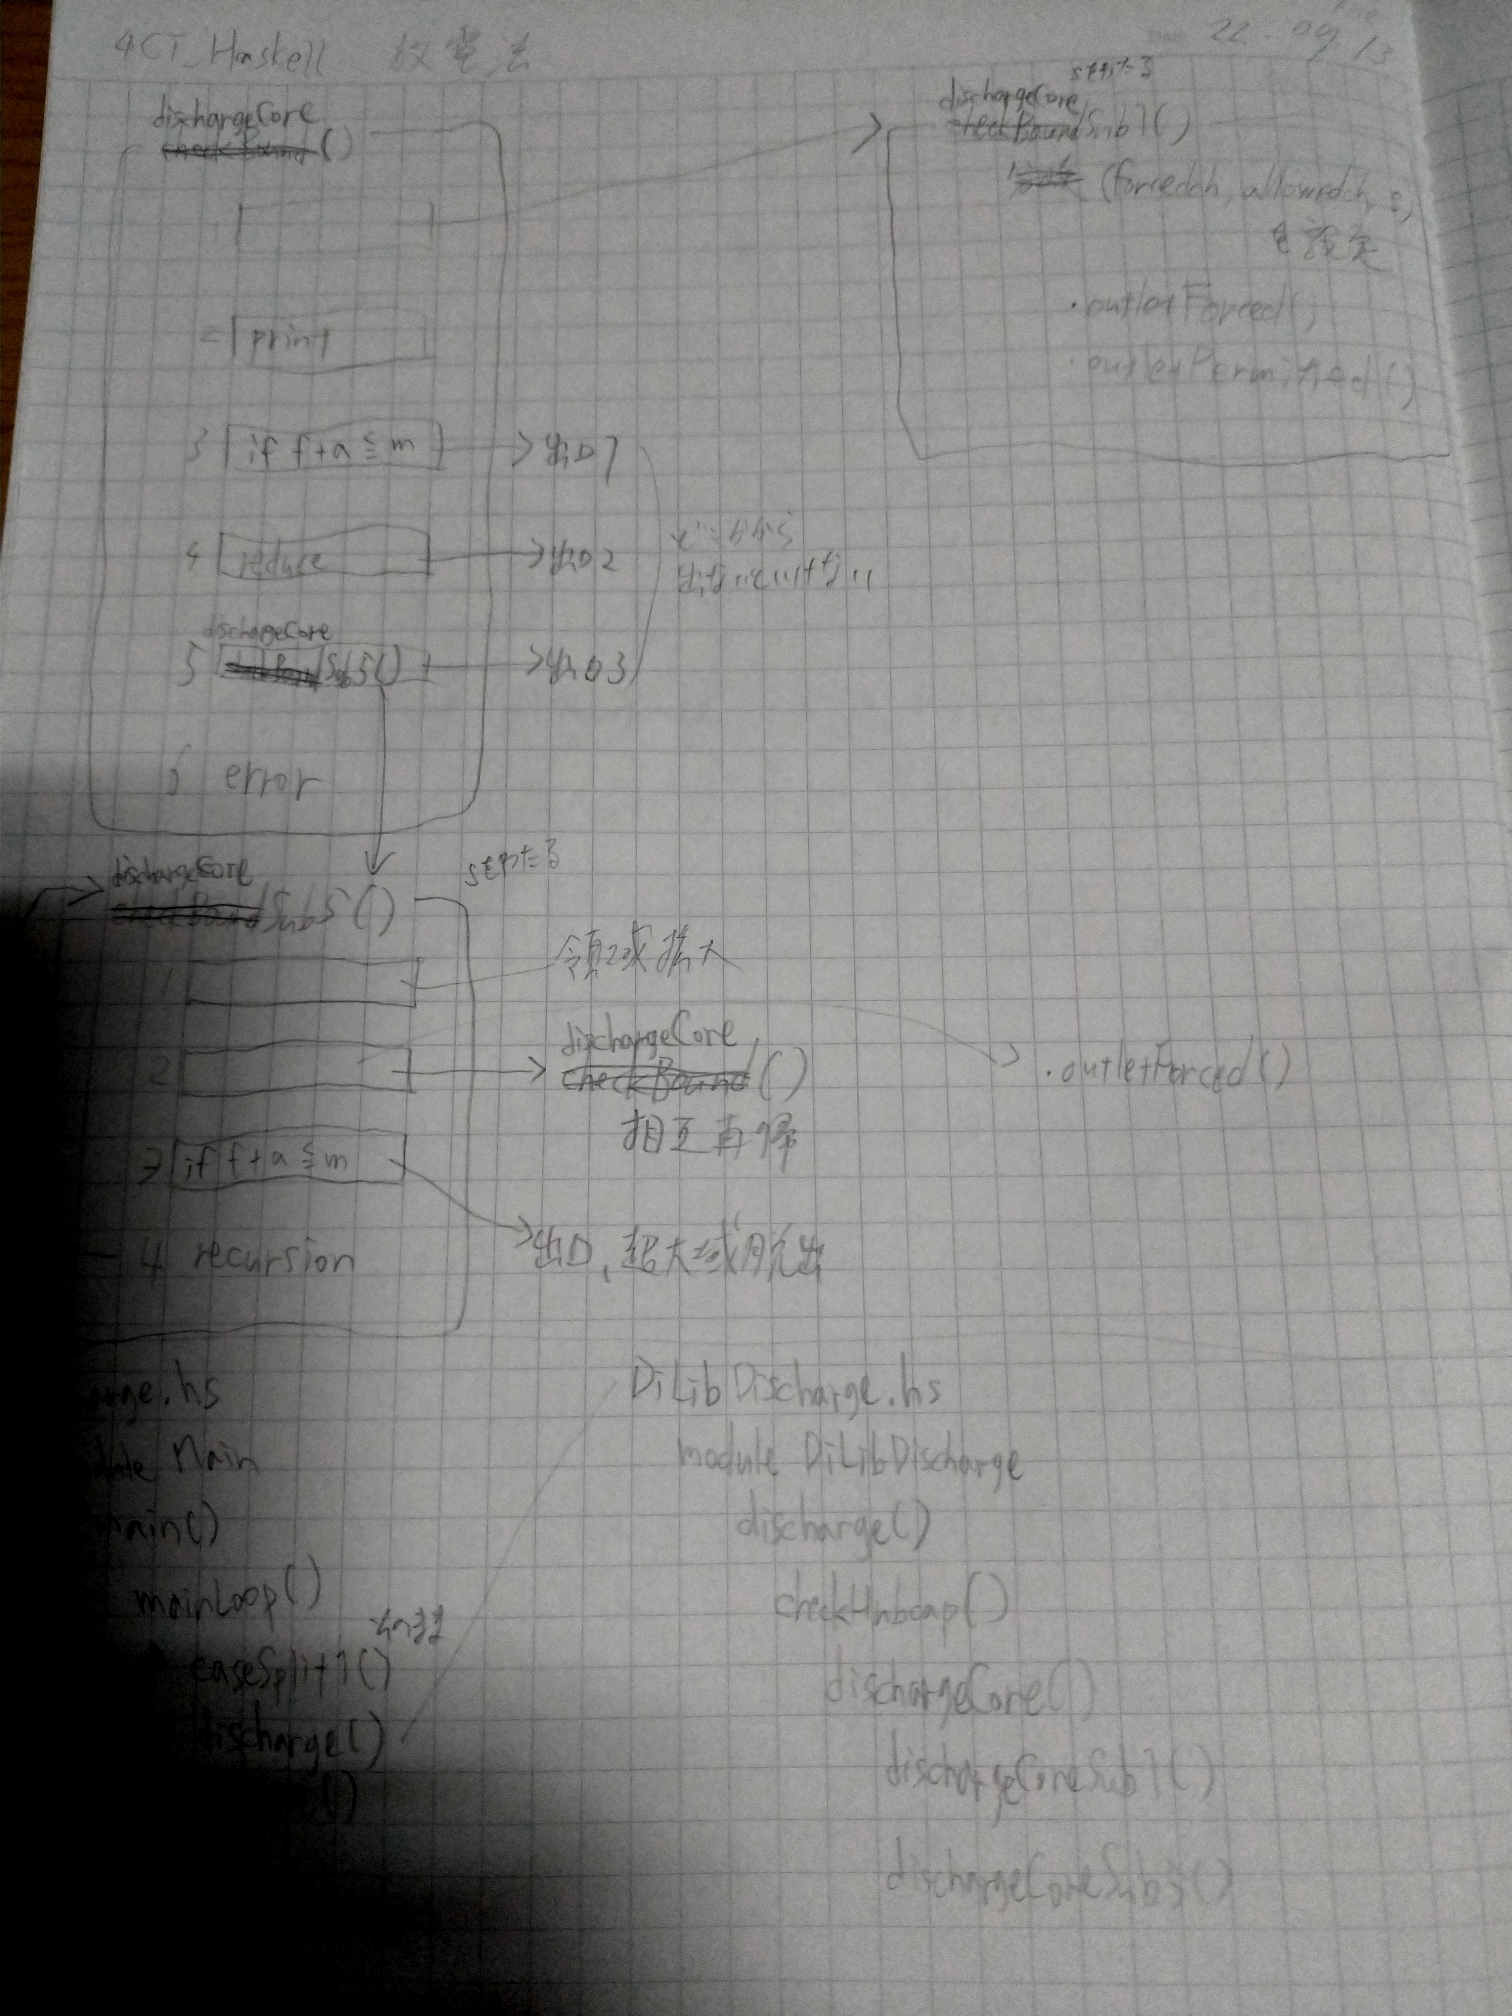 4CT_Haskell 放電法
22.09.13
dischargeCore
checkBound()
2 print
3 if f+a≦m
出口1
4 reduce
出口2
どこかから
出ないといけない
dischargeCore
5 Sub5()
出口3
6 error
dischargeCore
checkBoundSub1()
(forcedch, allowedch, s)
を設定
・outletForced()
・outletPermitted()
dischargeCore
checkBoundSub5()
1
領域拡大
2
dischargeCore
checkBound()
相互再帰
・outletForced()
3 if f+a≦m
出口、超大域脱出
4 recursion
arge.hs
dule Main
main()
mainLoop()
caseSplit1()
discharge()
DiLibDischarge.hs
module DiLibDischarge
discharge()
dischargeCore()
dischargeCoreSub1()
dischargeCoreSub5()